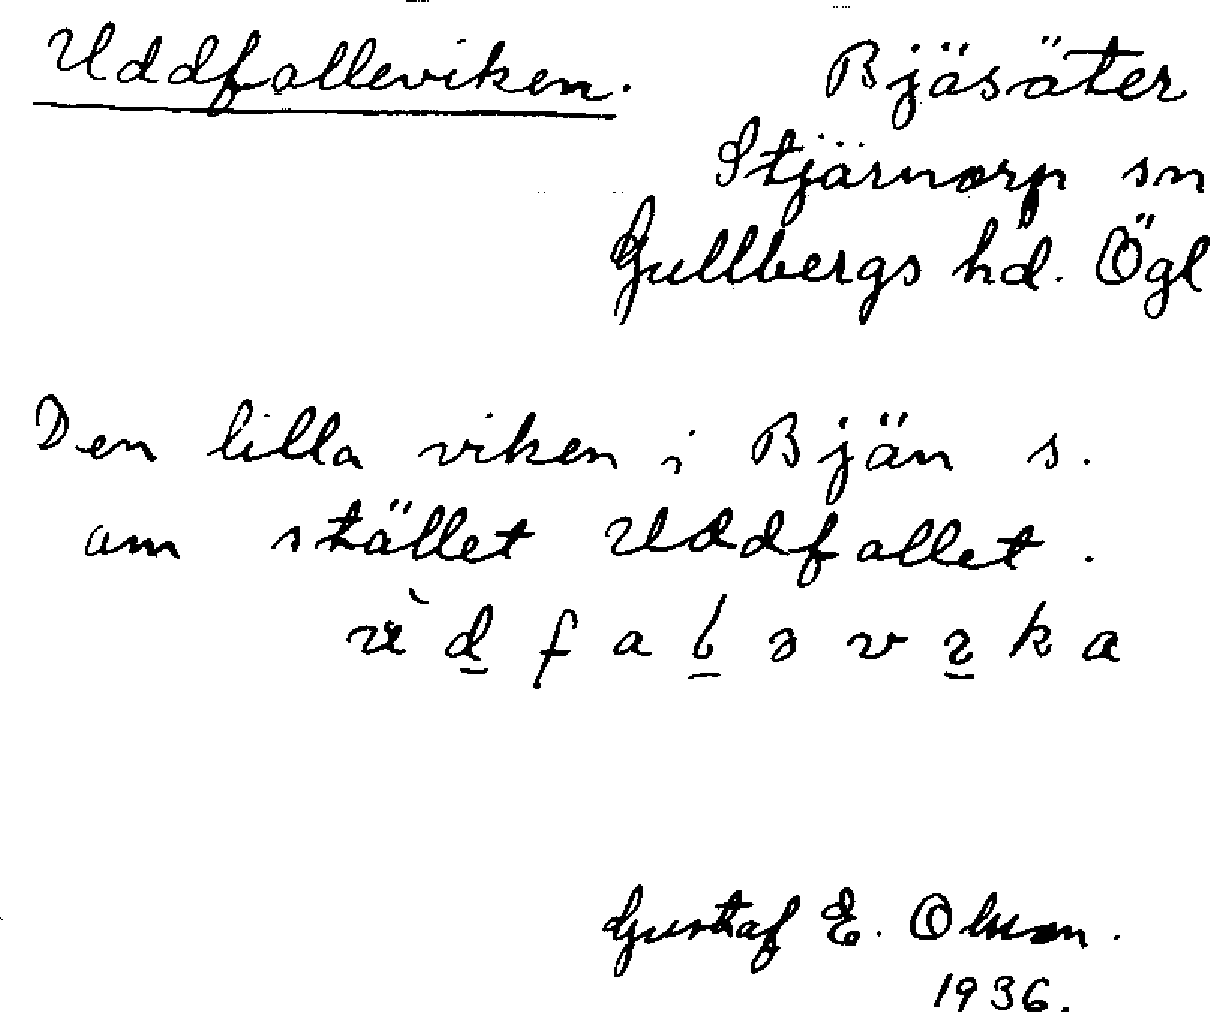 Uddfalleviken. Bjäsäter
Stjärnorp sn
Gullbergs hd. Ögl
Den lilla viken i Bjän s.
om stället Uddfallet.
Gustaf E. Olsson.
1936.